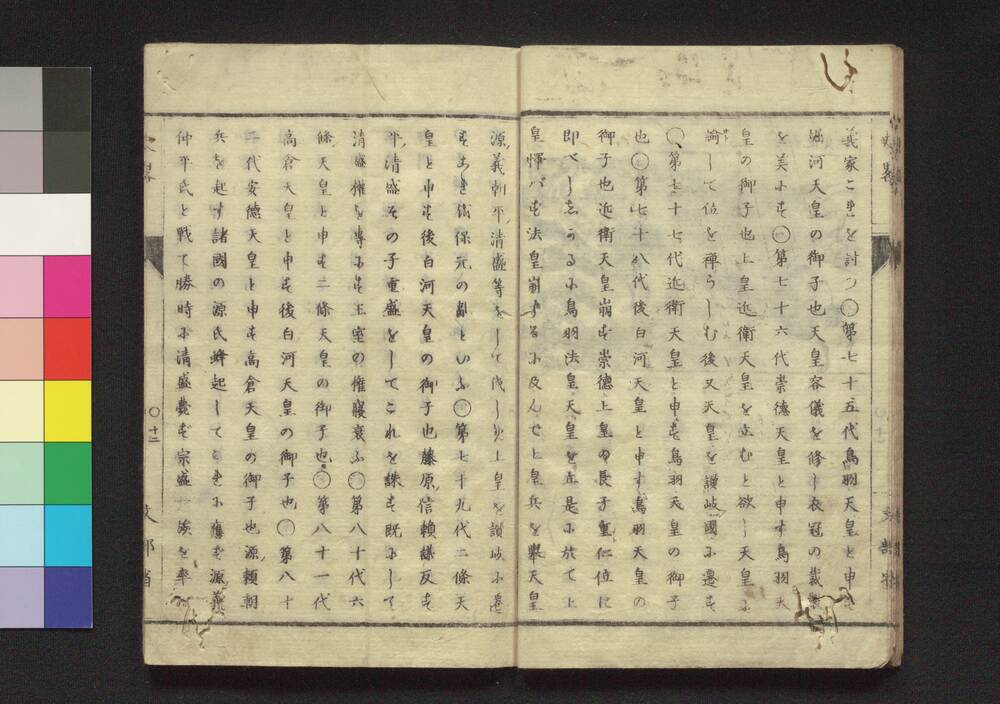 義家これを討つ〇第七十五代鳥羽天皇と申す
堀河天皇の御子也天皇容儀を修し衣冠の裁製
を美にす〇第七十六代崇徳天皇と申す鳥羽天
皇の御子也上皇近衛天皇を立むと欲し天皇に
諭して位を禅らしむ後又天皇を讃岐國に遷す
〇第七十七代近衛天皇と申す鳥羽天皇の御子
也〇第七十八代後白河天皇と申す鳥羽天皇の
御子也近衛天皇崩す崇徳上皇の長子重仁位に
即べししかるに鳥羽法皇天皇を立是に於て上
皇懌バず法皇崩するに及んで上皇兵を擧天皇
源義朝平清盛等をして伐しめ上皇を讃岐に遷
すこれを保元の亂といふ〇第七十九代二條天
皇と申す後白河天皇の御子也藤原信頼謀反す
平清盛その子重盛をしてこれを誅す既にして
清盛權を專にす王室の權寝衰ふ〇第八十代六
條天皇と申す二條天皇の御子也〇第八十一代
高倉天皇と申す後白河天皇の御子也〇第八十
二代安徳天皇と申す高倉天皇の御子也源頼朝
兵を起す諸國の源氏蜂起してこれに應ず源義
仲平氏と戰て勝時に清盛薨ず宗盛一族を率
〇十二